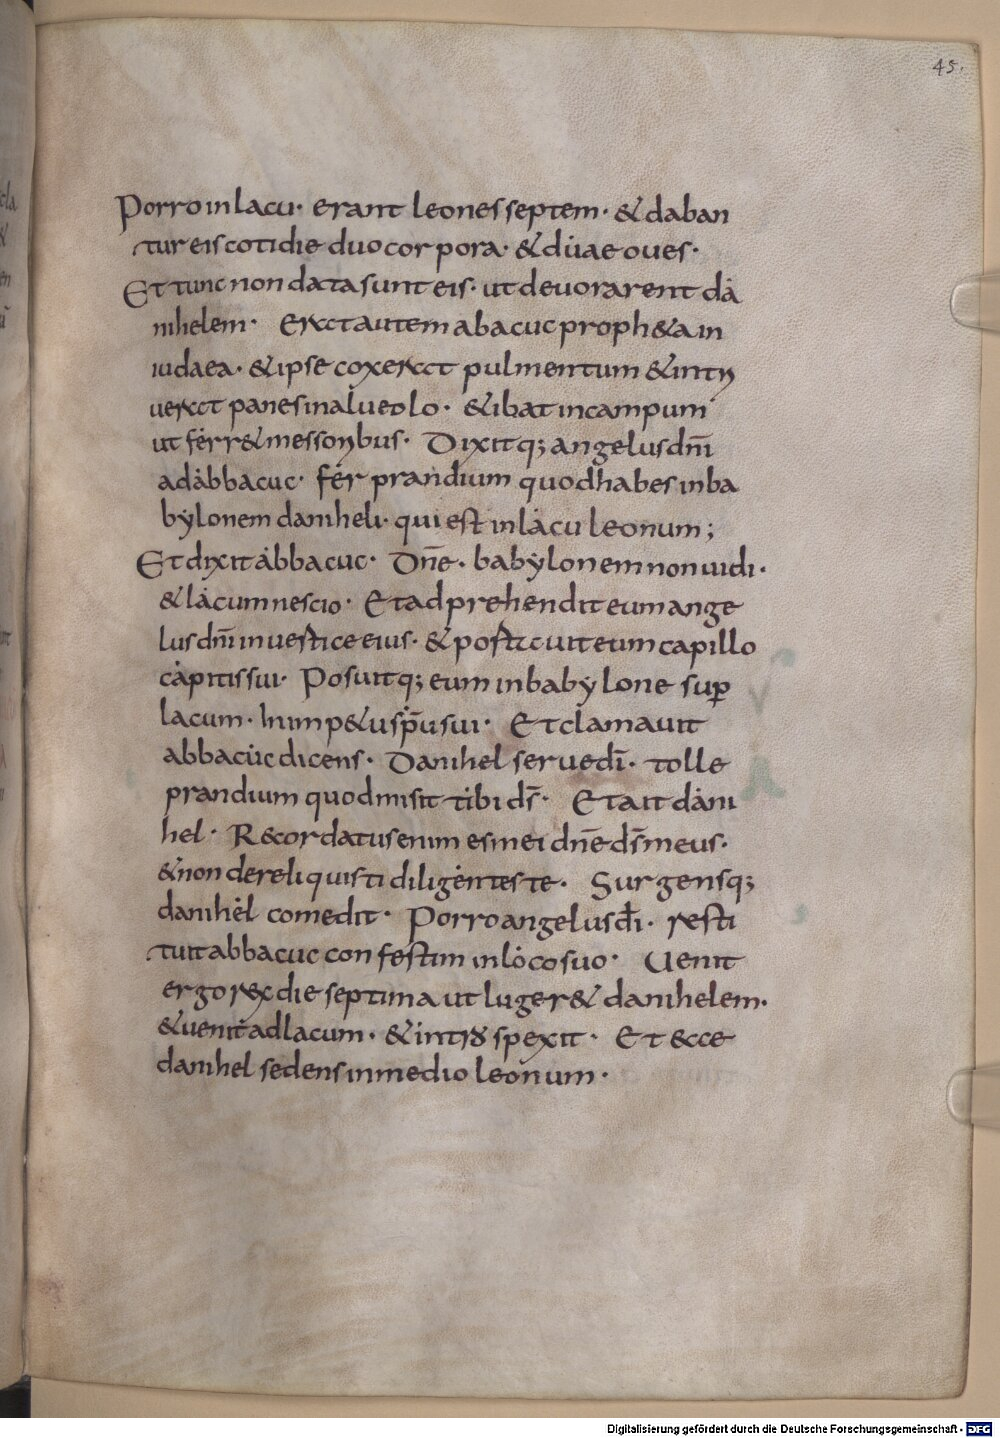 45.
Porro in lacu· erant leones septem· & daban
tur eis cotidie duo corpora· & duae oues·
Et tunc non data sunt eis· ut deuorarent da
nihelem· Erat autem abacuc proph&a in
iudaea· & ipse coxerat pulmentum & intri
uerat panes in alueolo· & ibat in campum
ut ferr& messoribus· Dixitq; angelus dn̄i
ad abbacuc· fer prandium quod habes in ba
bylonem daniheli· qui est in lacu leonum;
Et dixit abbacuc· Dn̄e· babylonem non uidi·
& lacum nescio· Et adprehendit eum ange
lus dn̄i in uestice eius· & portauit eum capillo
capitis sui· Posuitq; eum in babylone sup̄
lacum· In imp&u sp̄us sui· Et clamauit
abbacuc dicens· Danihel serue dī· tolle
prandium quod misit tibi ds̄· Et ait dani
hel· Recordatus enim es mei dn̄e ds̄ meus·
& non dereliquisti diligentes te· Surgensq;
danihel comedit· Porro angelus dī· resti
tuit abbacuc confestim in loco suo· Uenit
ergo rex die septima ut luger& danihelem·
& uenit ad lacum· & introspexit· Et ecce
danihel sedens in medio leonum·
Digitalisierung gefördert durch die Deutsche Forschungsgemeinschaft - DFG